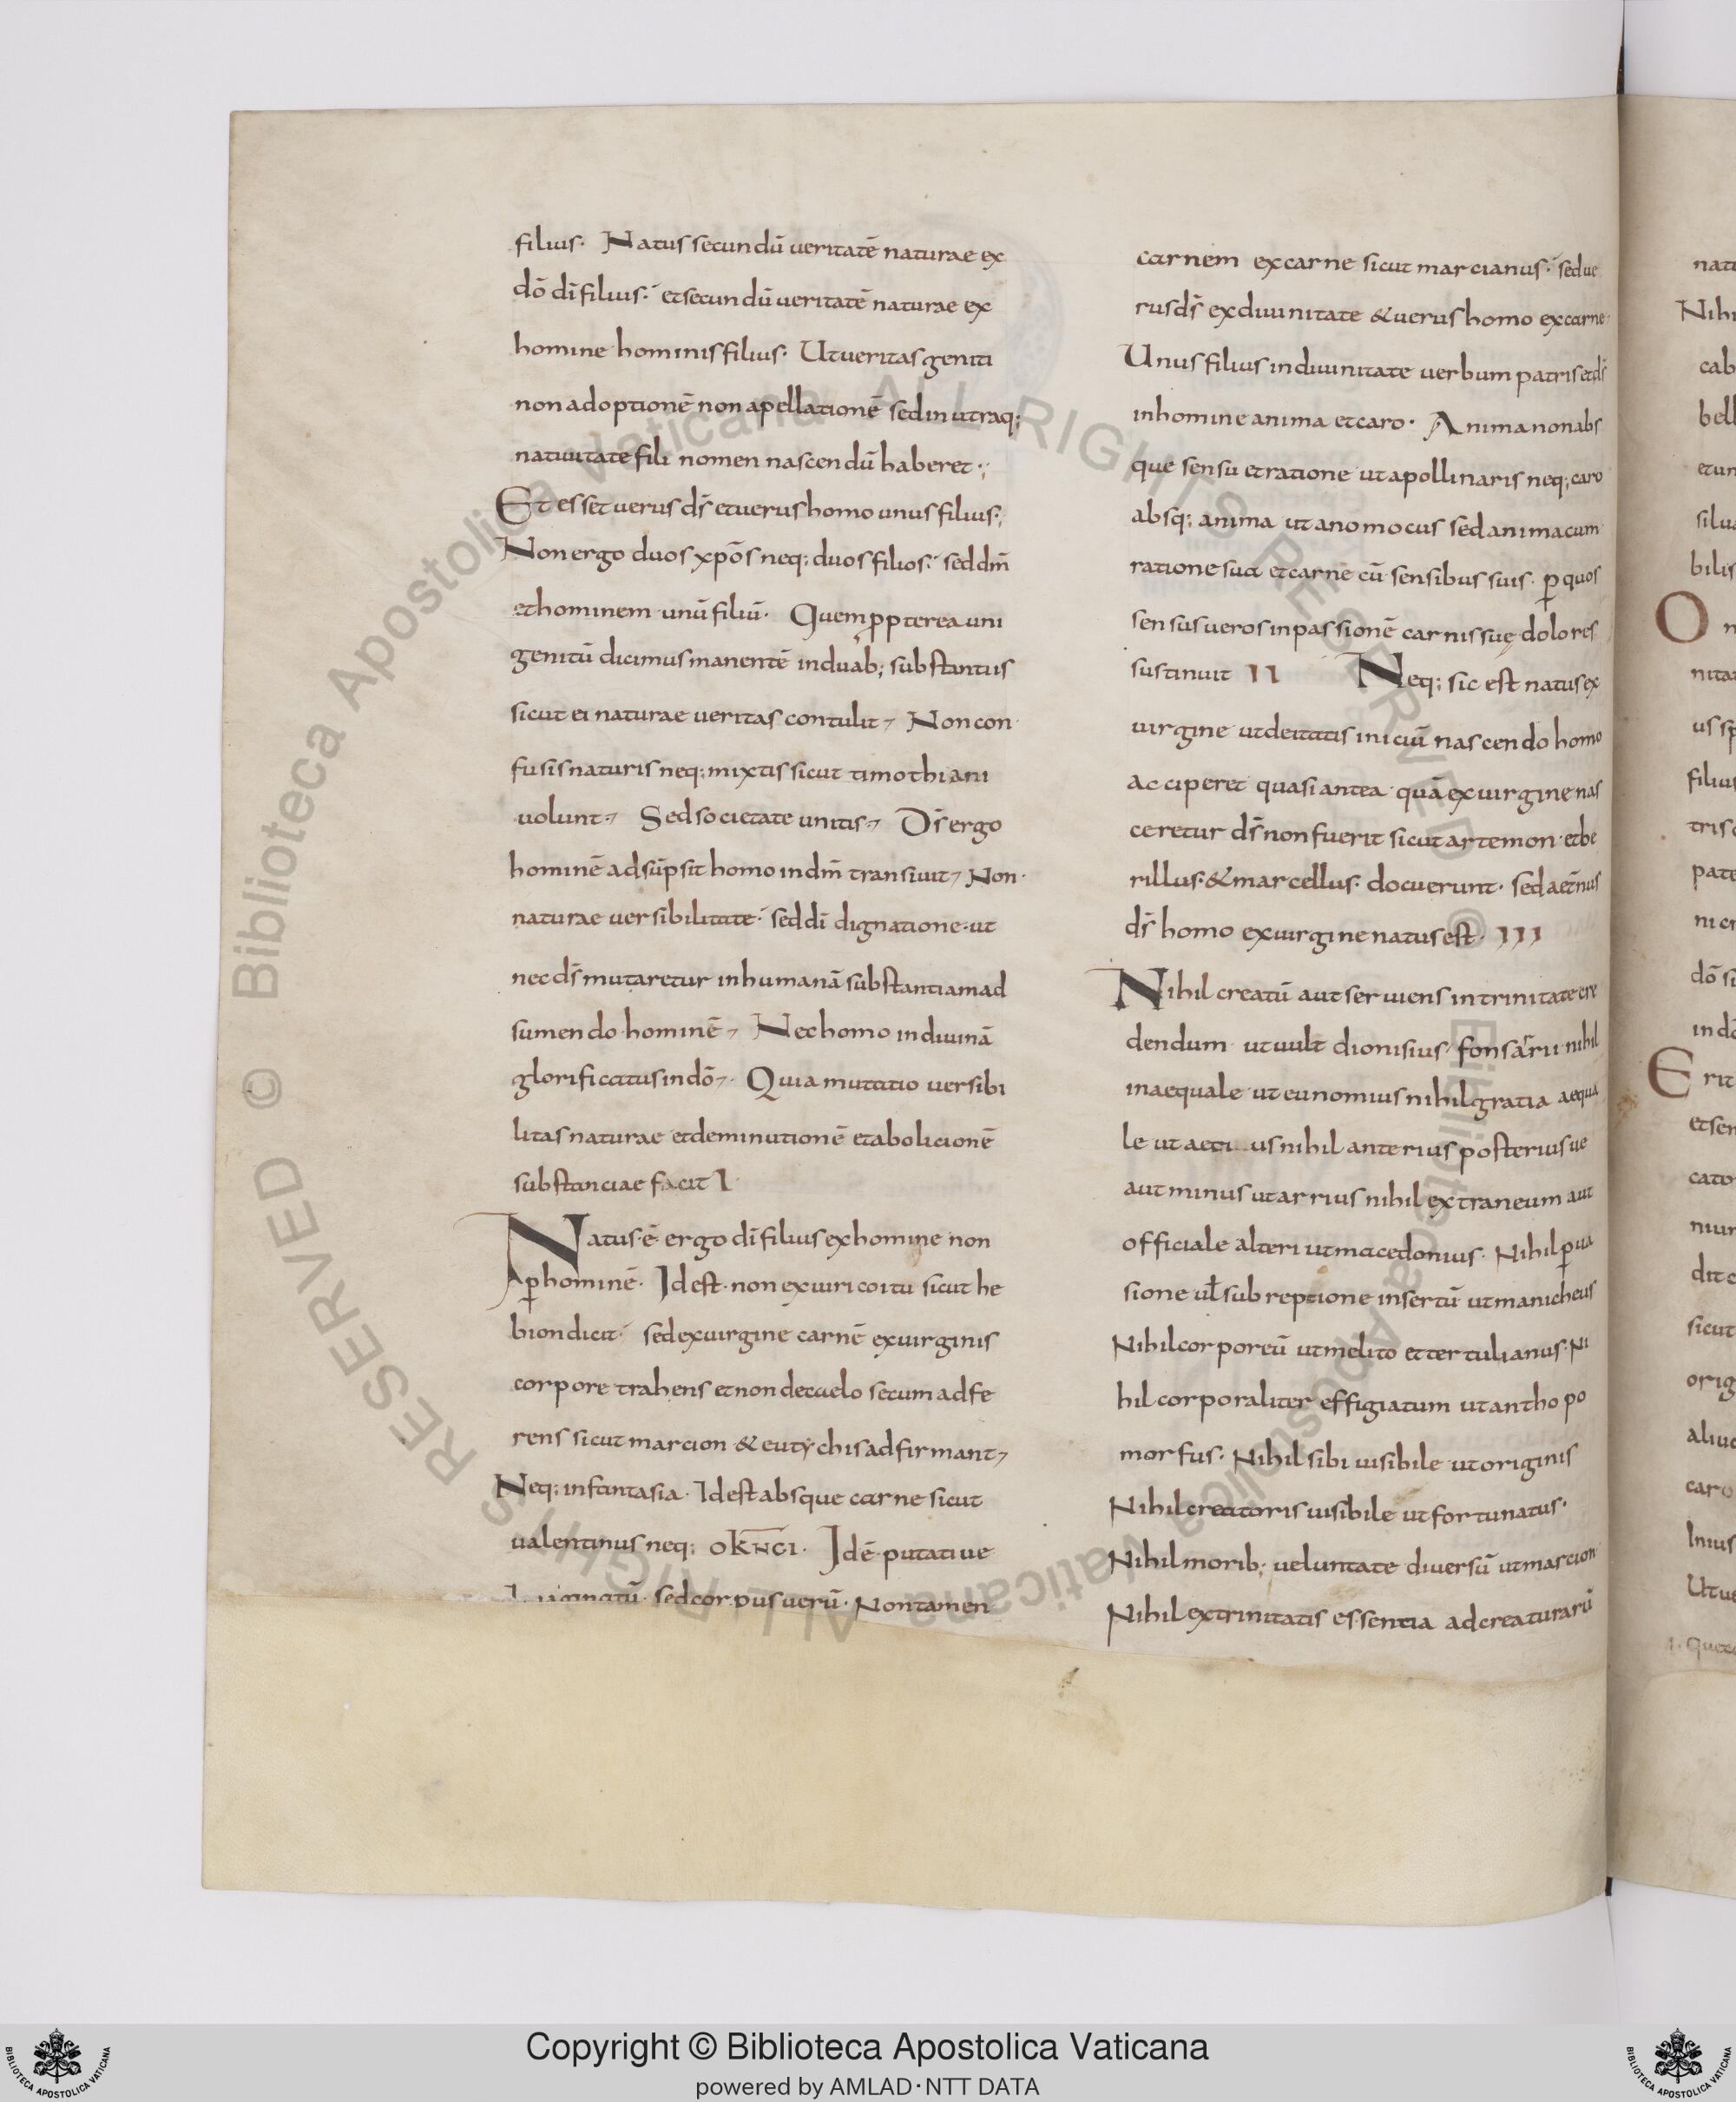 filius· Natus secundū ueritatē naturae ex
dō dī filius· et secundū ueritatē naturae ex
homine hominis filius· Ut ueritas geniti
non adoptionē non apellationē sed in utraq;
natiuitate fili nomen nascendū haberet·;
Et esset uerus ds̄ et uerus homo unus filius·;
Non ergo duos xp̄os neq; duos filios· sed dm̄
et hominem unū filiū· Quem ꝓpterea uni
genitū dicimus manentē in duab; substantiis
sicut ei naturae ueritas contulit, Non con
fusis naturis neq; mixtis sicut timothiani
uolunt, Sed societate unitis, Ds̄ ergo
hominē adsūpsit homo in dm̄ transiuit, Non·
naturae uersibilitate· sed dī dignatione· ut
nec ds̄ mutaretur in humanā substantiam ad
sumendo hominē, Nec homo in diuinā
glorificatus in dō, Quia mutatio uersibi
litas naturae et deminutionē et abolicionē
substanciae facit I
Natus ē ergo dī filius ex homine non
ꝑ hominē· Id est· non ex uiri coitu sicut he
bion dicit· sed ex uirgine carnē ex uirginis
corpore trahens et non de caelo secum adfe
rens sicut marcion & eutychis adfirmant,
Neq; in fantasia· Id est absque carne sicut
ualentinus neq; Idē putatiue
sed corpus uerū· Non tamen
carnem ex carne sicut marcianus· sed ue
rus ds̄ ex diuinitate & uerus homo ex carne·
Unus filius in diuinitate uerbum patris et ds̄
in homine anima et caro· Anima non abs
que sensu et ratione ut apollinaris neq; caro
absq; anima ut anomocus sed anima cum
ratione sua et carne cū sensibus suis· ꝑ quos
sensus ueros in passionē carnis suę dolores
sustinuit II Neq; sic est natus ex
uirgine ut deitatis iniciū nascendo homo
acciperet quasi antea quā ex uirgine nas
ceretur ds̄ non fuerit sicut artemon· et be
rillus· & marcellus· docuerunt· sed aet̄nus
ds̄ homo ex uirgine natus est· III
Nihil creatū aut seruiens in trinitate cre
dendum ut uult dionisius· fons arrii nihil
inaequale ut eunomius nihil gratia aequa
le ut aeti us nihil anterius posteriusue
aut minus ut arrius nihil extraneum aut
officiale alteri ut macedonius· Nihil ꝑsua
sione uł subreptione insertū ut manicheus
Nihil corporeū ut melito et tertulianus· Ni
hil corporaliter effigiatum ut anthopo
morfus· Nihil sibi uisibile ut originis
Nihil creatoris uisibile ut fortunatus·
Nihil morib; ueluntate diuersū ut marcion
Nihil ex trinitatis essentia ad creaturarū
Nihi
cab
bell
etun
silua
bilis
O n
us sp
filius
tris
pate
ni cr
dō si
in dō
Erit
et sen
cato
dit
sicut
orig
caro
Ut ue
Biblioteca Apostolica Vaticana ALL RIGHTS RESERVED ©
Biblioteca Apostolica Vaticana ALL RIGHTS RESERVED ©
BIBLIOTECA APOSTOLICA VATICANA
Copyright © Biblioteca Apostolica Vaticana
powered by AMLAD·NTT DATA
BIBLIOTECA APOSTOLICA VATICANA